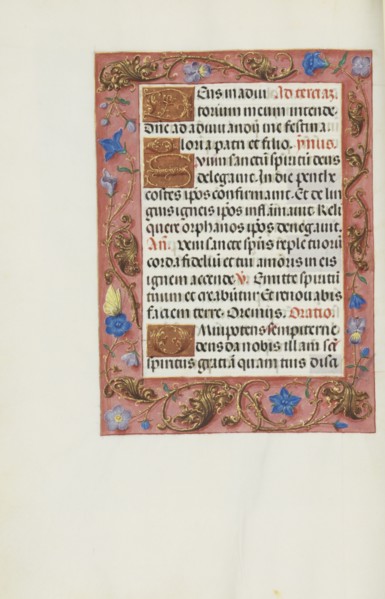 Deus in adiu. Ad terciaz
torium meum intende.
Dne ad adiuuandū me festina
Glori a patri et filio. ymnus.
Suum sanctū spiritū deus
delegauit. In die penthe
costes ip̄os confirmauit. Et de lin
guis igneis ip̄os inflāmauit. Reli
quere orphanos ip̄os denegauit.
An̄. veni sancte sp̄us reple tuorū
corda fideliū et tui amoris in eis
ignem accende. V. Emitte spiritū
tuum et creabūtur. Et renouabis
faciem terre. Oremus. Oratio.
Omnipotens sempiterne
deus da nobis illam sct̄i
spiritus gratiā qua tuis disci